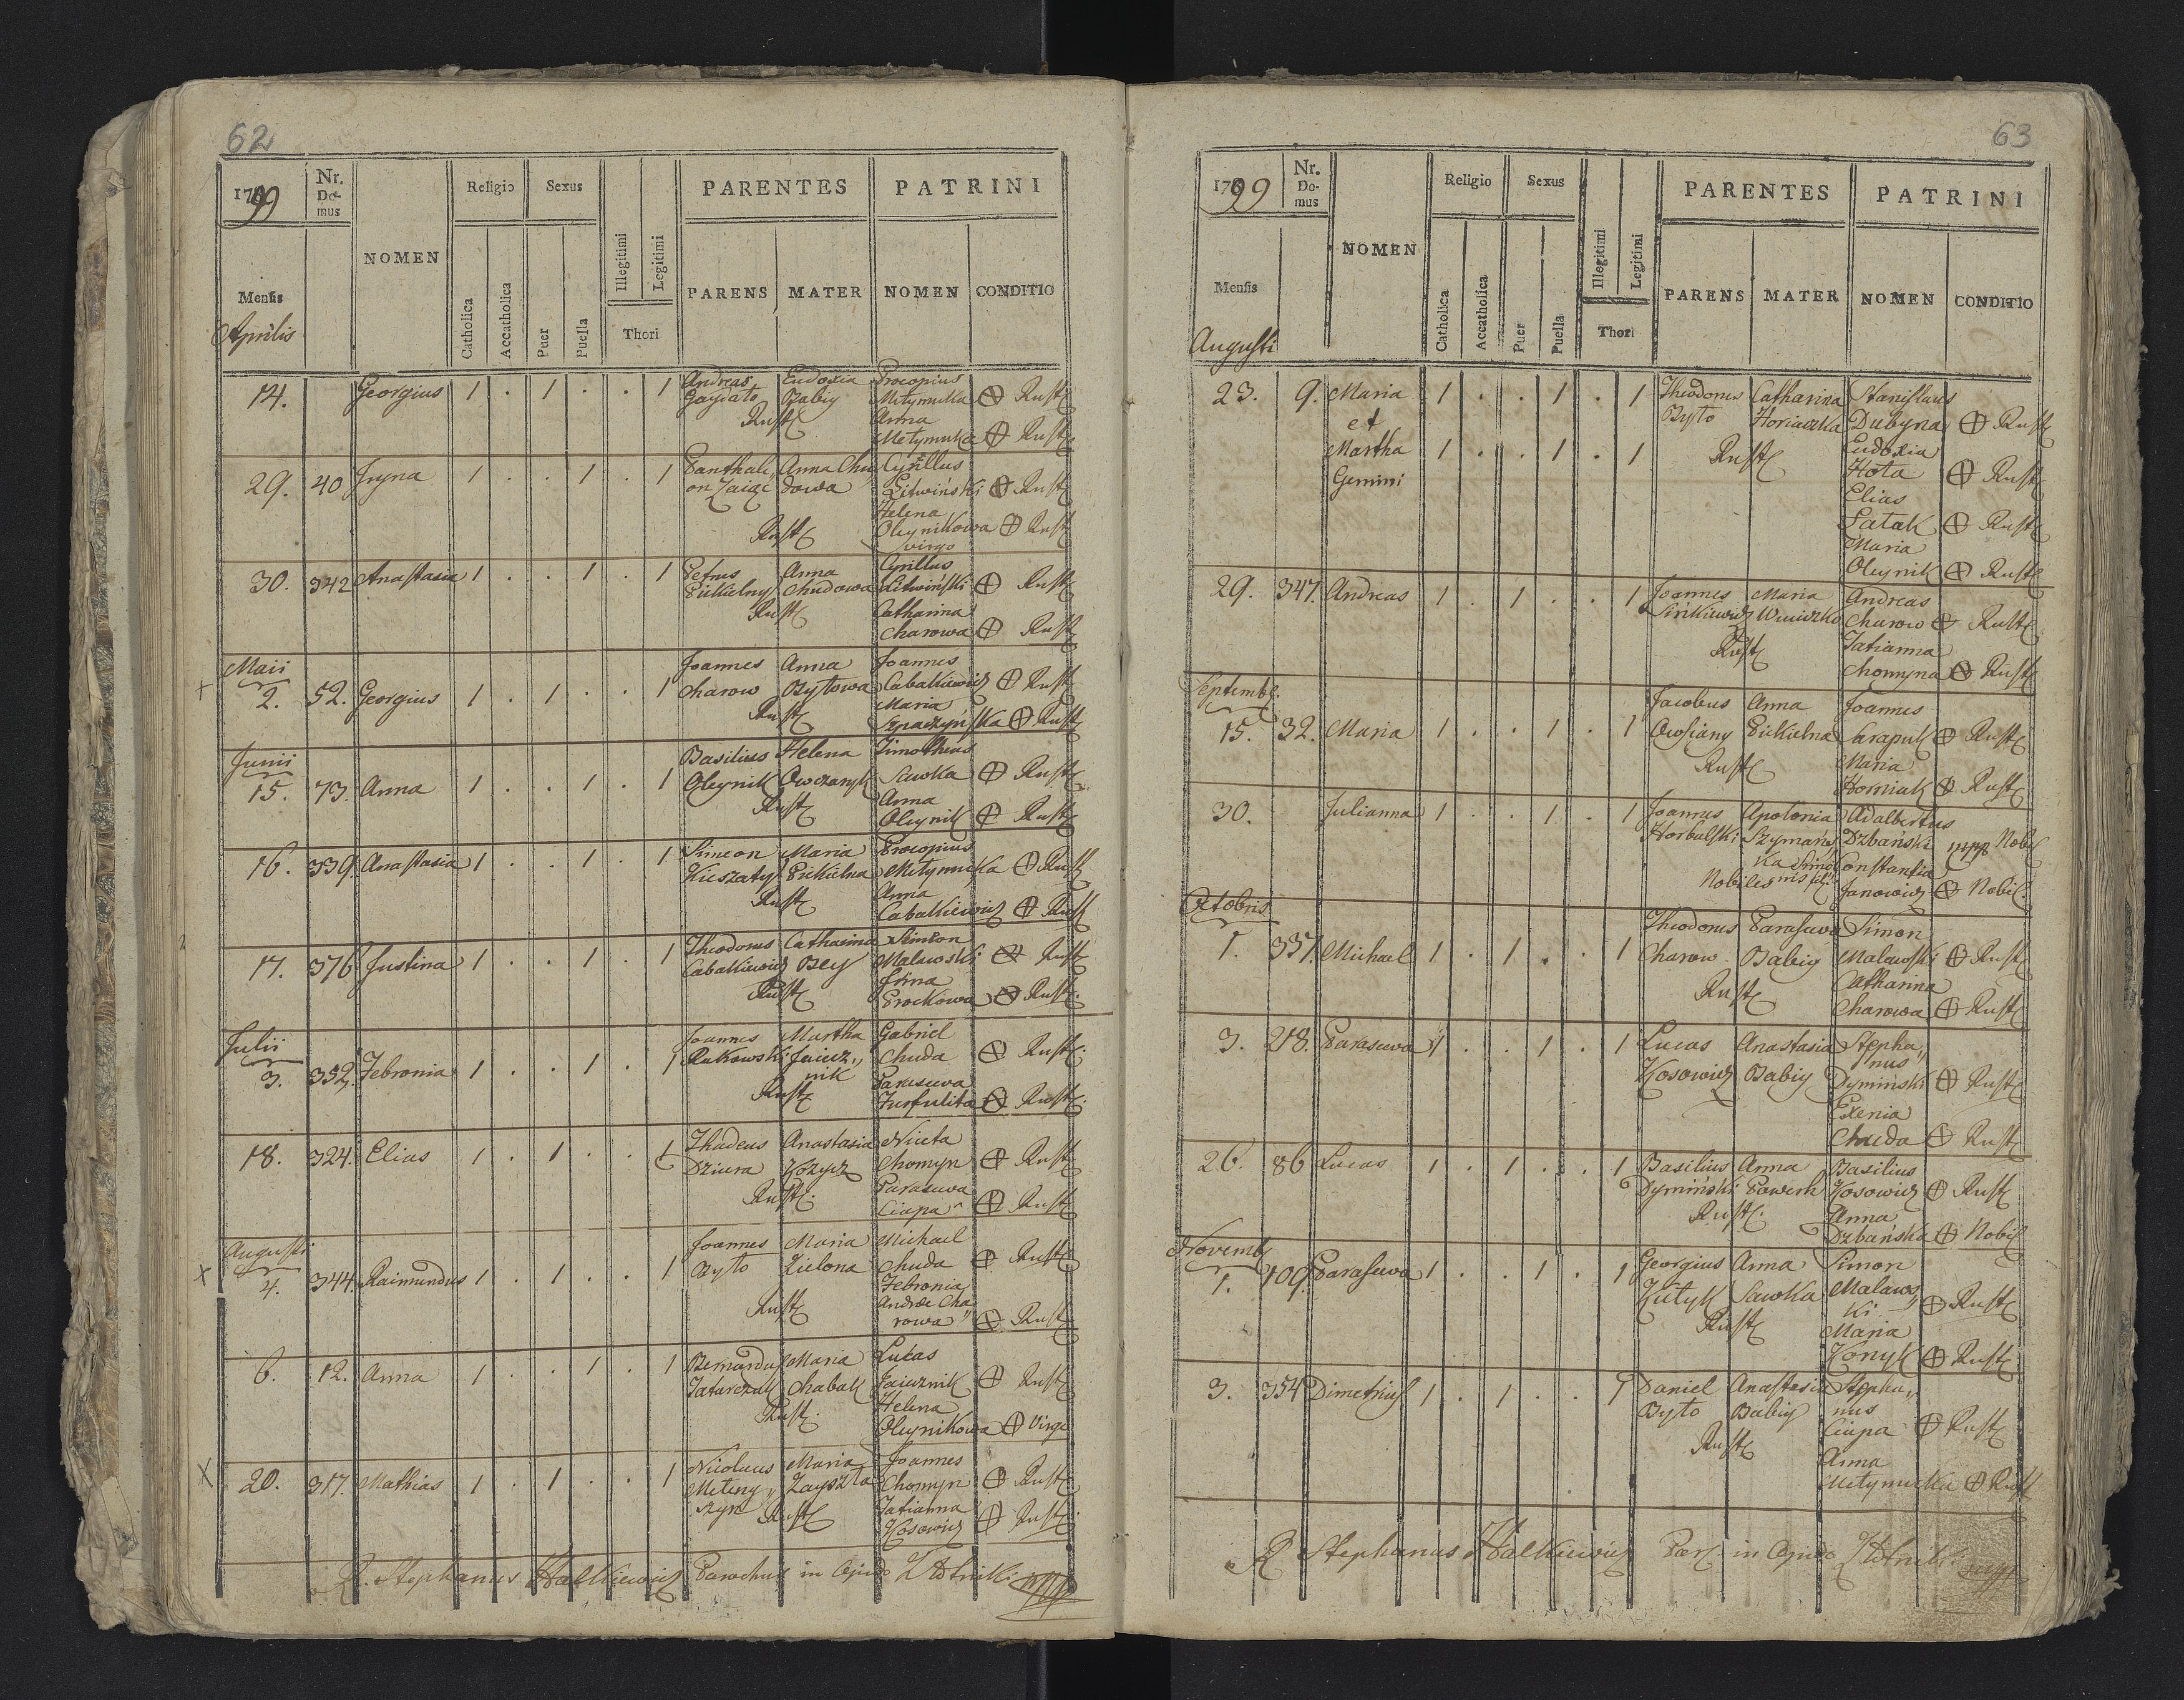 62
1799
Nr. Domus
NOMEN
Religio
Sexus
PARENTES
PATRINI
Mensis
Catholica
Accatholica
Puer
Puella
Illegitimi
Legitimi
Thori
PARENS
MATER
NOMEN
CONDITIO
Aprilis
14. Georgius 1 . 1 . . 1 Andreas Eudoxia Procopius
Babiy Metymuka Rust
Rust Anna
Metymuka Rust
29. 40 Iryna 1 . . 1 . 1 Panthale Anna Chu Cyrillus
on Zaiąc dowa Litwiński Rust
Helena
Rust Oleynikowa Rust
virgo
30. 342 Anastasia 1 . . 1 . 1 Petrus Anna Cyrillus
Pickielny Chudowa Litwiński Rust
Rust Catharina
Charowa Rust
Maii
2. 52. Georgius 1 . 1 . . 1 Joannes Anna Joannes
Charow Bytowa Cabalkiewicz Rust
Rust Maria
Rust
Junii
15. 73. Anna 1 . . 1 . 1 Basilius Helena Timotheus
Oleynik Owczaryk Sawka Rust
Rust Anna
Oleynik Rust
16. 339 Anastasia 1 . . 1 . 1 Simeon Maria Procopius
Kieszaty Piekielna Metymuka Rust
Rust Anna
Cabalkiewicz Rust
17. 376 Justina 1 . . 1 . 1 Theodorus Catharina Simeon
Cabalkiewicz Bey Malawski Rust
Rust Irina
Prockowa Rust
Julii
3. 352. Febronia 1 . . 1 . 1 Joannes Martha Gabriel
Rukowski Jaiecz,, Chuda Rust
nik Parascewa
Rust Rust
18. 324. Elias 1 . 1 . . 1 Thadeus Anastasia Niceta
Dziura Kozycz Chomyn Rust
Rust. Parascewa
Ciapa Rust
Augusti
4. 344. Raimundus 1 . 1 . . 1 Joannes Maria Michael
Byto Zielona Chuda Rust
Febronia
Rust Andreæ Cha,,
rowa Rust
6. 12. Anna 1 . . 1 . 1 Bernardus Maria Lucas
Tatarczuk Chabak Jaiecznik Rust
Rust. Helena
Oleynikowa Virgo
20. 317. Mathias 1 . 1 . . 1 Nicolaus Maria Joannes
Meteny,, Chomyn Rust
szyn Rust Tatianna
Kosowicz Rust
R. Stephanus Halkiewicz Parochus in Oppido
63
1799
Nr. Domus
NOMEN
Religio
Sexus
PARENTES
PATRINI
Mensis
Catholica
Accatholica
Puer
Puella
Illegitimi
Legitimi
Thori
PARENS
MATER
NOMEN
CONDITIO
Augusti
23. 9. Maria 1 . . 1 . 1 Theodorus Catharina Stanislaus
et Byto Horiaczka Dubyna Rust
Martha 1 . . 1 . 1 Rust Eudoxia
Gemini Hota Rust
Elias
Satak Rust
Maria
Oleynik Rust
29. 347. Andreas 1 . 1 . . 1 Joannes Maria Andreas
Sinkiewicz Charow Rust
Rust Tatianna
Chomyna Rust
Septembr.
15. 32. Maria 1 . . 1 . 1 Jacobus Anna Joannes
Owsiany Piekielna Sarapuk Rust
Rust Maria
Horniak Rust
30. Julianna 1 . . 1 . 1 Joannes Apolonia Adalbertus
Horbalski Szymańs Drbański Nobil
ka Constantia
Nobiles Janowicz Nobil.
Octobris
1. 337. Michael 1 . 1 . . 1 Theodorus Parascewa Simon
Charow Babiy Malawski Rust
Rust Catharina
Charowa Rust
3. 218. Parascewa 1 . . 1 . 1 Lucas Anastasia Stepha,,
Kosowicz Babiy nus
Dymiński Rust
Exenia
Chuda Rust
26. 86 Lucas 1 . 1 . . 1 Basilius Anna Basilius
Dymiński Pawerk Kosowicz Rust
Rust. Anna
Drbańska Nobil
Novembr
1. 109. Parascewa 1 . . 1 . 1 Georgius Anna Simon
Kutyk Sawka Malaws,,
Rust ki Rust
Maria
Konyk Rust
3. 354 Dimetrius 1 . 1 . . 1 Daniel Anastasia Stepha,,
Byto Babiy nus
Rust Ciapa Rust
Anna
Metymuka Rust
R Stephanus Halkiewicz Par in Oppido